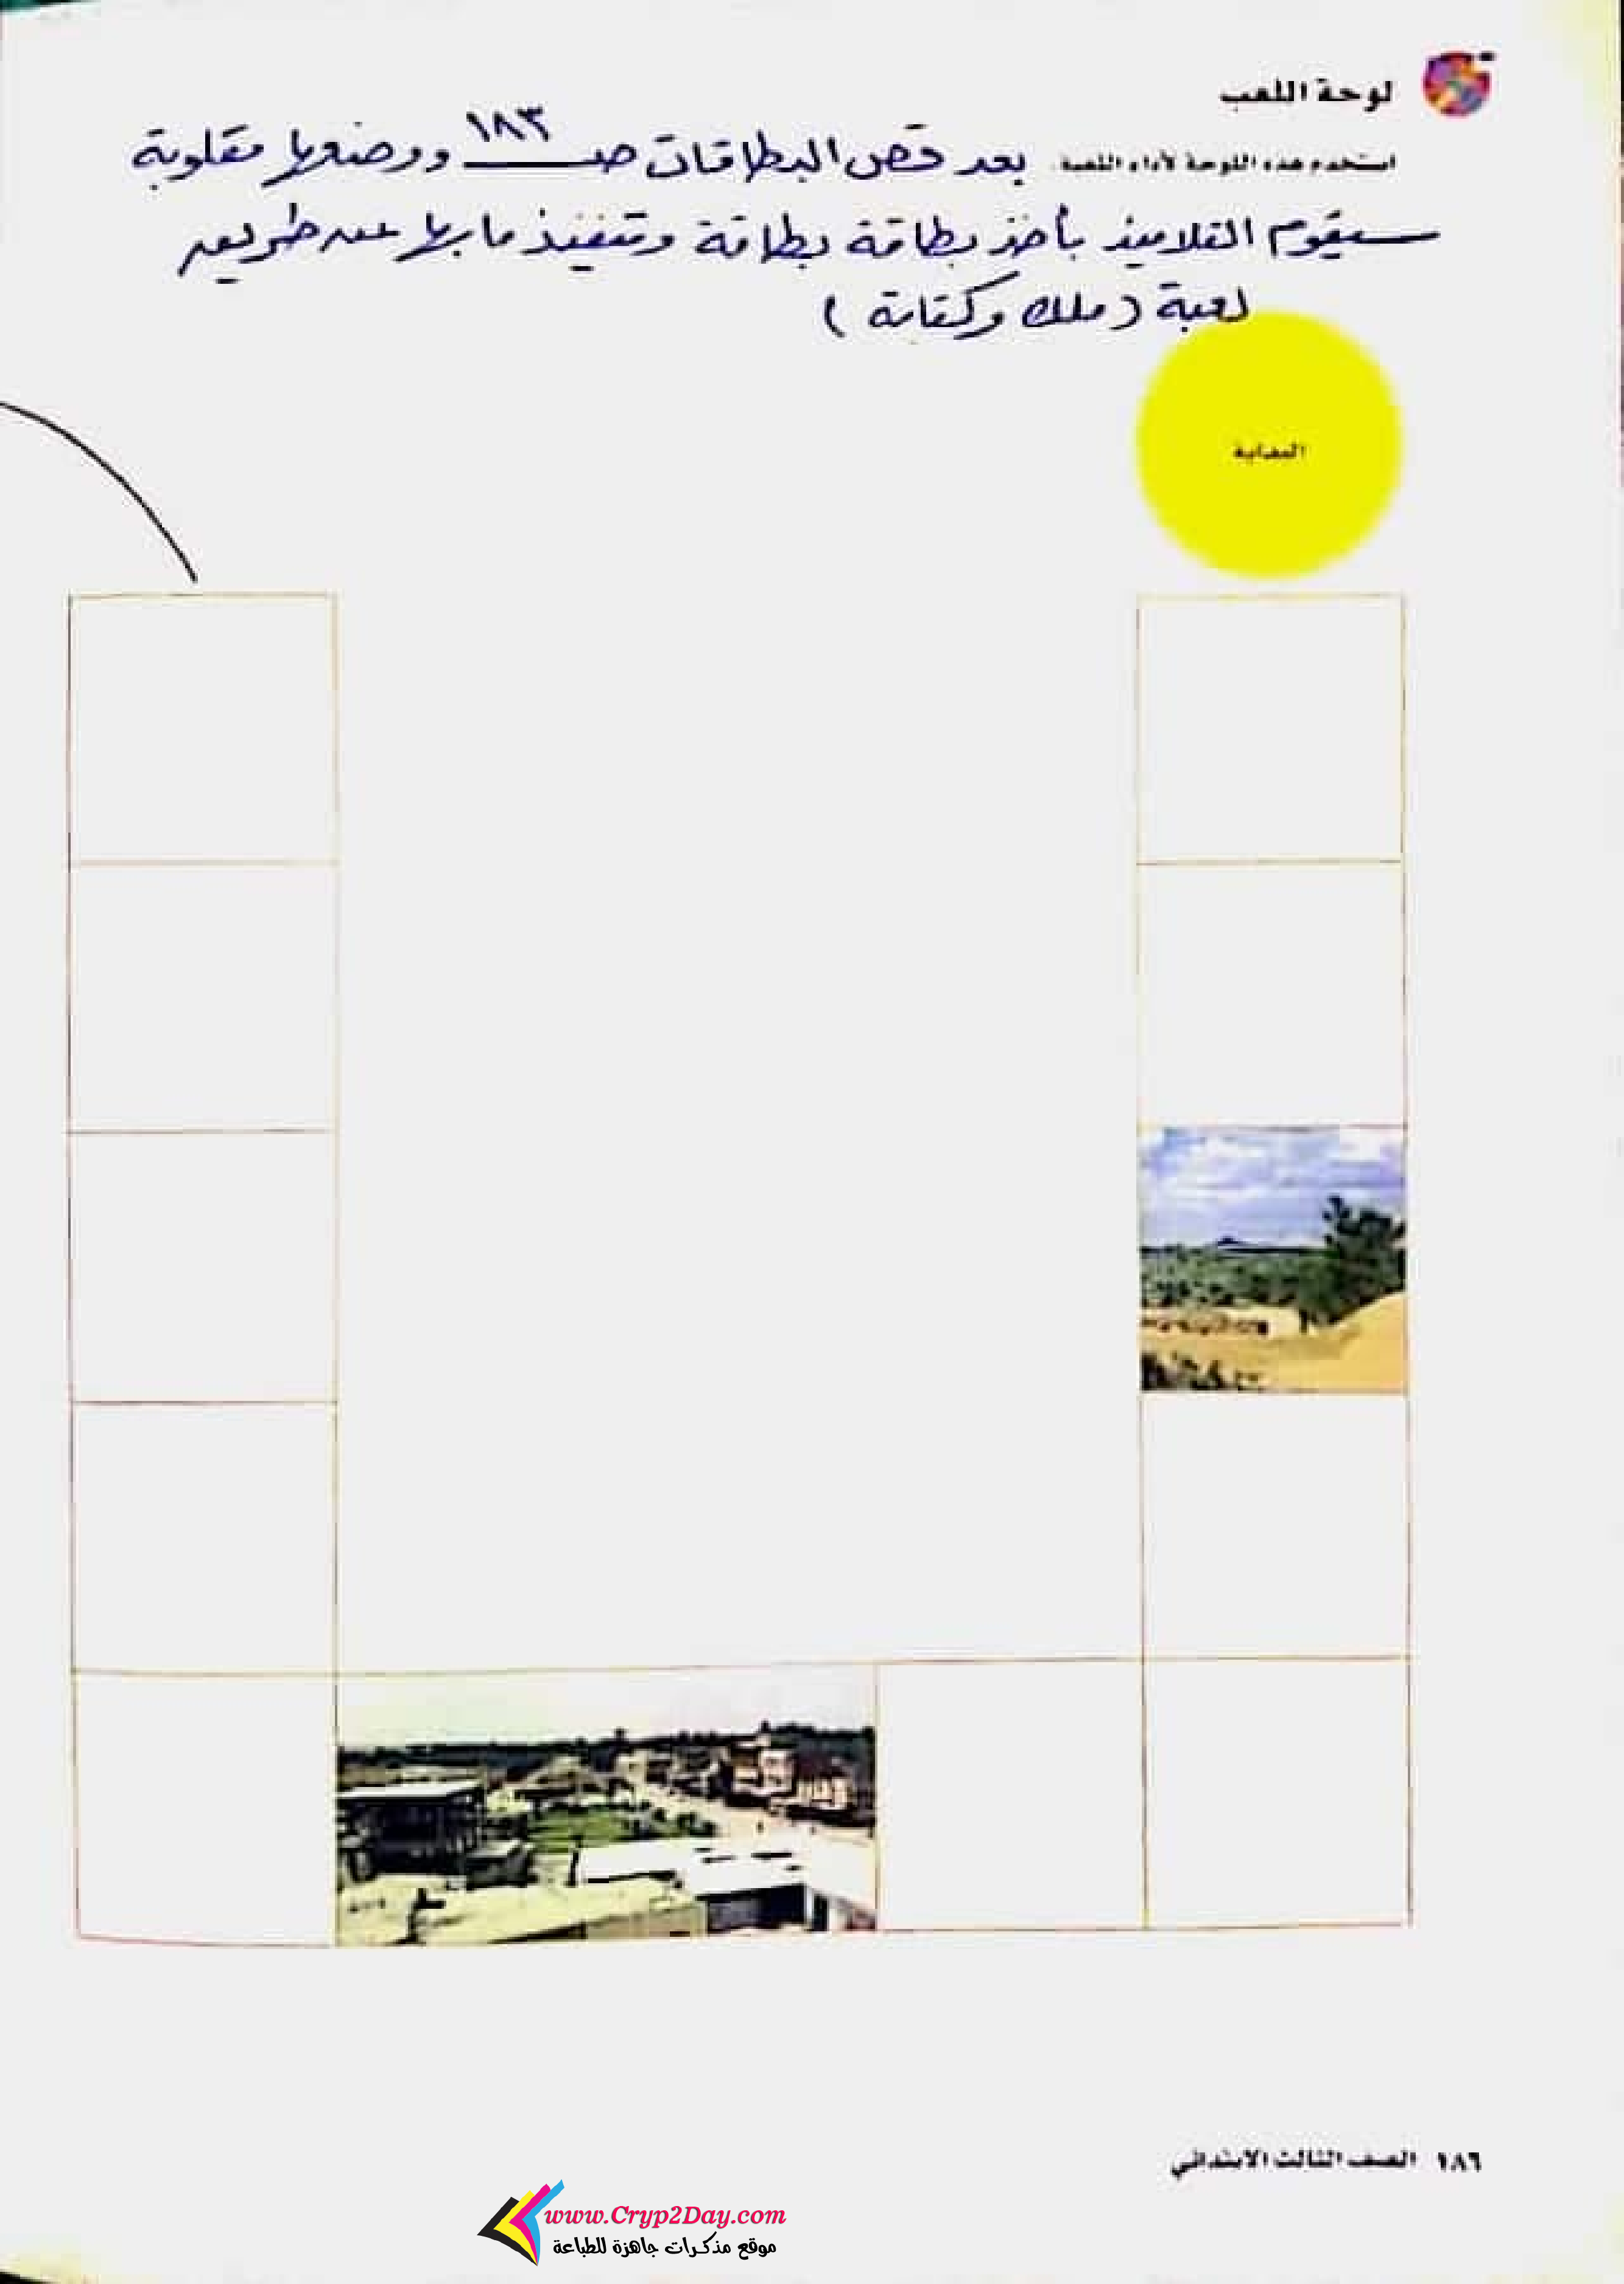 لوحة اللعب
استخدم هذه اللوحة لأداء اللعبة. بعد قص البطاقات صـ ١٨٣ ووضعها مقلوبة
سيقوم التلاميذ بأخذ بطاقة بطاقة وتنفيذ ما بها عن طريق
لعبة (ملك وكتابة)
البداية
١٨٦ الصف الثالث الابتدائي
www.Cryp2Day.com
موقع مذكرات جاهزة للطباعة